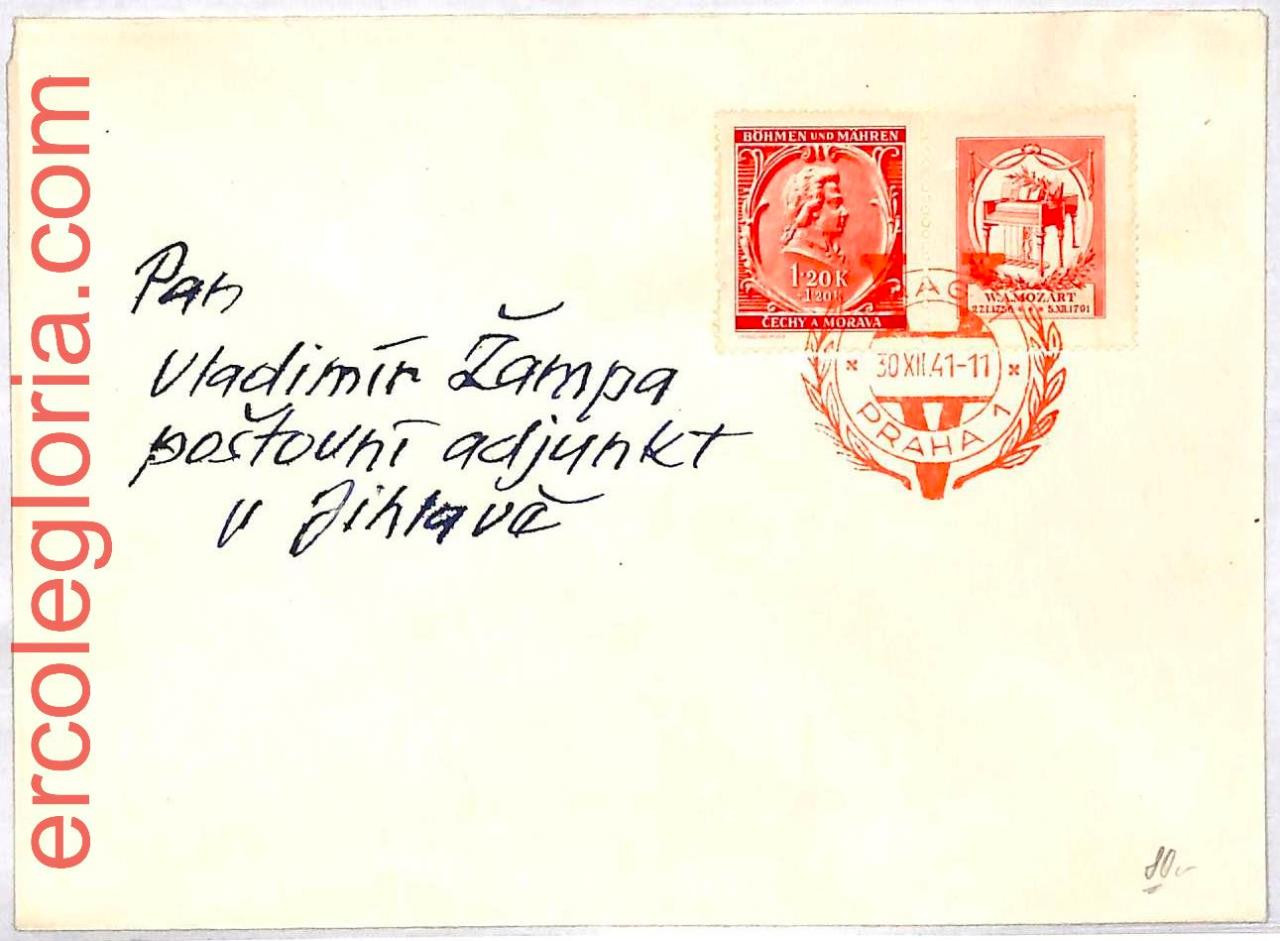 ercolegloria.com
BÖHMEN UND MÄHREN
1·20 K
+1·20 K
ČECHY A MORAVA
W.A.MOZART
27.I.1756 * * * 5.XII.1791
30 XII.41-11
PRAHA 1
Pan
Vladimír Žampa
poštovní adjunkt
v Jihlavě